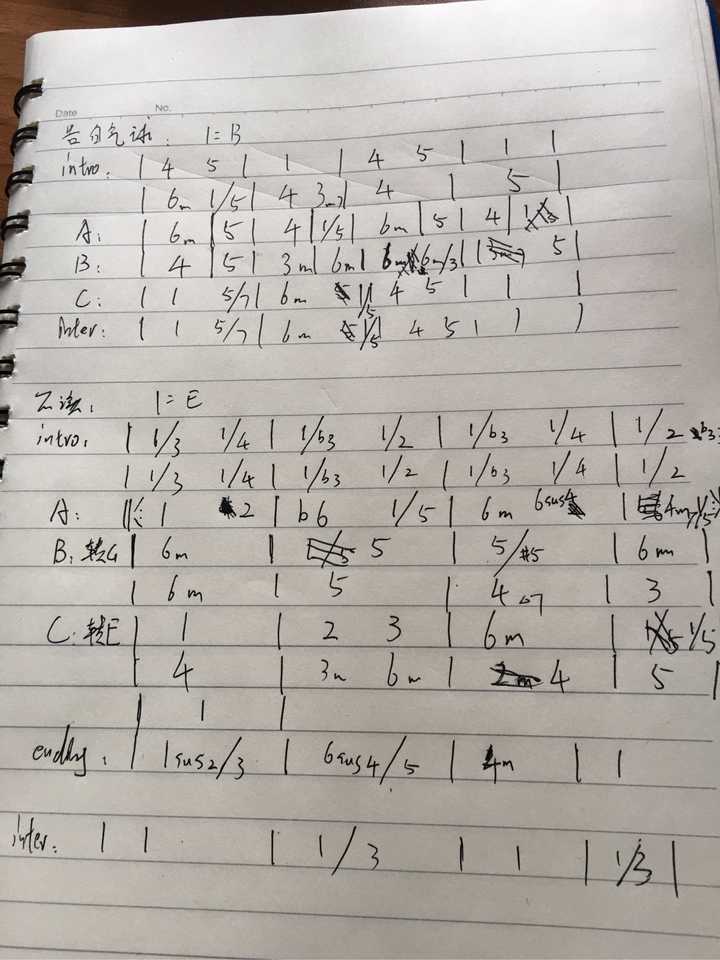 Date No.
告白气球： 1=B
intro: | 4 5 | 1 | 4 5 | 1 |
| 6m 1/5 | 4 3m7 | 4 | 5 |
A: | 6m | 5 | 4 | 1/5 | 6m | 5 | 4 | |
B: | 4 | 5 | 3m | 6m | 6m/3 | 5 |
C: | 1 5/7 | 6m 1/5 | 4 5 | 1 |
Inter: | 1 5/7 | 6m 1/5 | 4 5 | 1 |
1=E
intro: | 1/3 1/4 | 1/b3 1/2 | 1/b3 1/4 | 1/2 b3
| 1/3 1/4 | 1/b3 1/2 | 1/b3 1/4 | 1/2
A: ‖: 1 2 | b6 1/5 | 6m 6sus4 | 4m 1/5 :
B: 转G | 6m | 5 | 5/#5 | 6m |
| 6m | 5 | 4△7 | 3 |
C: 转E | 1 | 2 3 | 6m | 1/5
| 4 | 3m 6m | 4 | 5 |
| 1 |
ending: | 1sus2/3 | 6sus4/5 | 4m | 1
inter: | 1 | 1/3 | 1 | 1/3 |